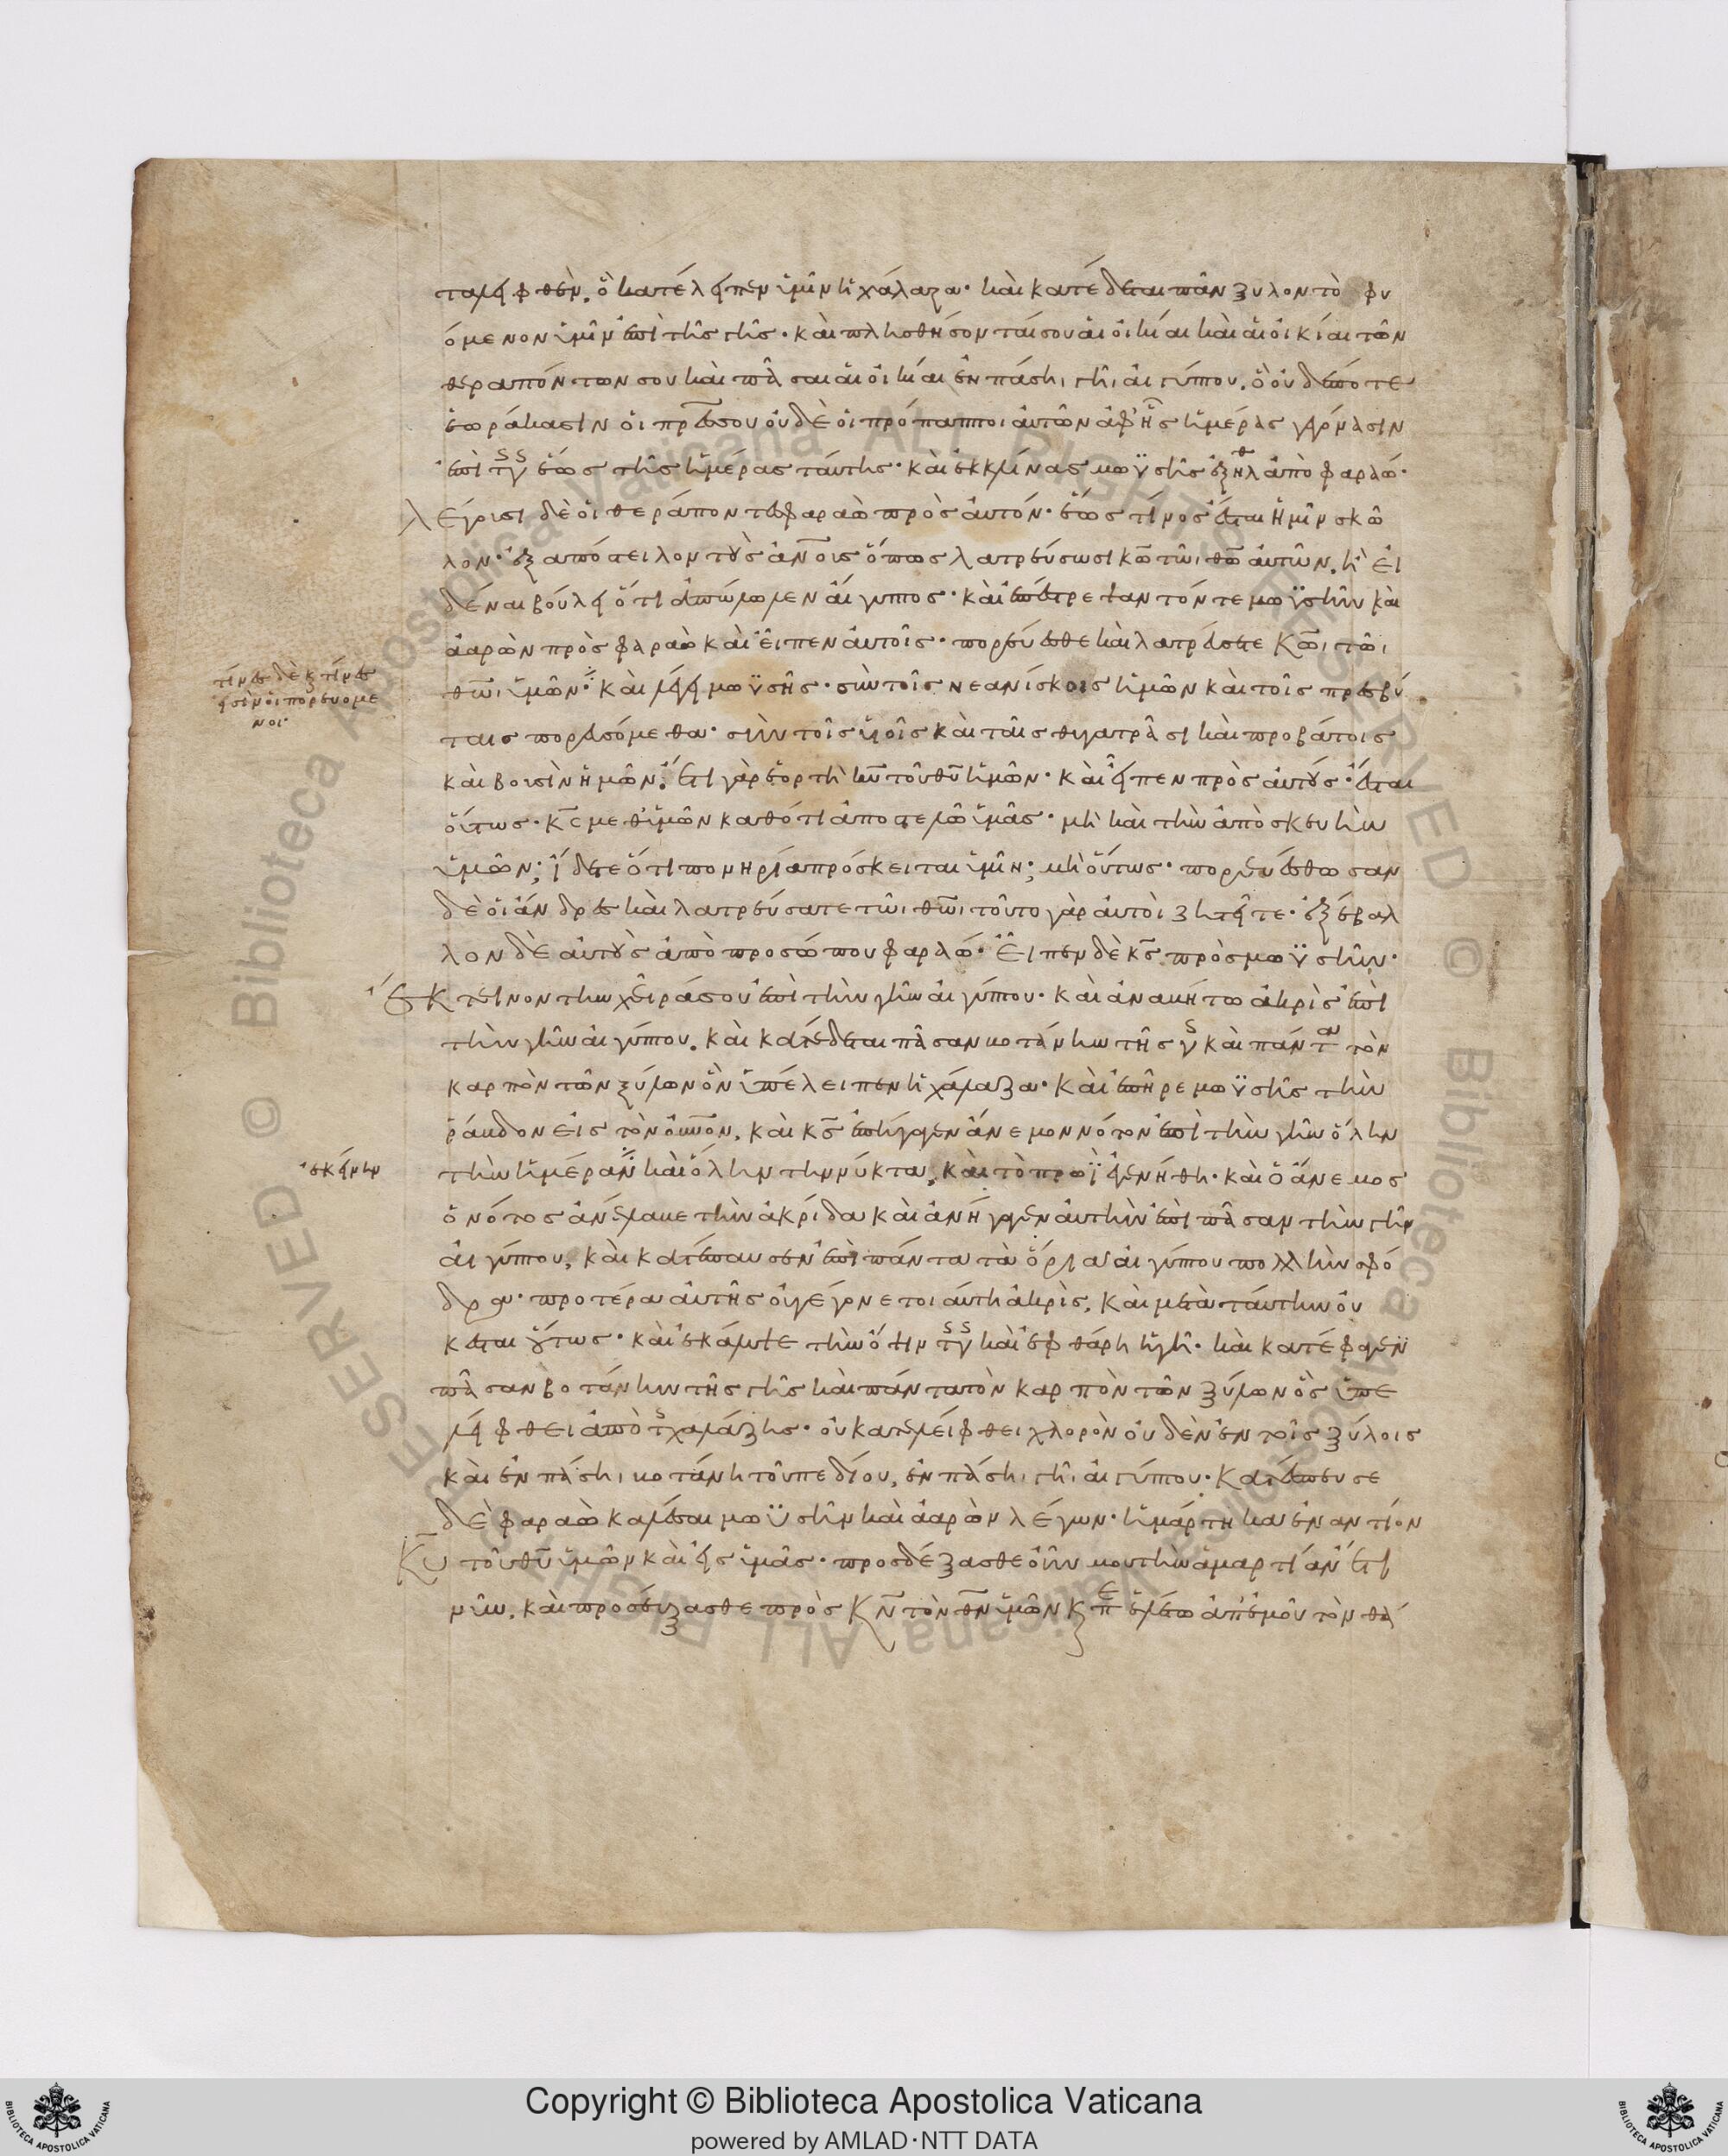 ταλειφθὲν, ὃ κατέλειπεν ὑμῖν ἡ χάλαζα· καὶ κατέδεται πᾶν ξύλον τὸ φυ
όμενον ὑμῖν ἐπὶ τῆς γῆς· καὶ πλησθήσονταί σου αἱ οἰκίαι καὶ αἱ οἰκίαι τῶν
θεραπόντων σου καὶ πᾶσαι αἱ οἰκίαι ἐν πάσηι γῆι αἰγύπτου. ὃ οὐδέποτε
ἑωράκασιν οἱ πρες σου οὐδὲ οἱ πρόπαπποι αὐτῶν ἀφ' ἧς ἡμέρας γεγόνασιν
ἐπὶ τ γ ἕως τῆς ἡμέρας ταύτης· καὶ ἐκκλίνας μωϋσῆς ἐξῆλθ ἀπὸ φαραώ·
λέγουσι δὲ οἱ θεράποντες φαραὼ πρὸς αὐτόν· ἕως τίνος ἔσται ἡμῖν σκῶ
λον· ἐξαπόστειλον τοὺς ανους ὅπως λατρεύσωσι κω τῶι θω αὐτῶν. ἢ εἰ
δέναι βούλει ὅτι ἀπώλωλεν αἴγυπτος· καὶ ἐπέστρεψαν τόν τε μωϋσῆν καὶ
ἀαρὼν πρὸς φαραὼ καὶ εἶπεν αὐτοῖς· πορεύεσθε καὶ λατρεύσατε κωι τῶι
θωι ὑμῶν· καὶ λέγει μωϋσῆς· σὺν τοῖς νεανίσκοις ἡμῶν καὶ τοῖς πρεσβύ
ταις πορευσόμεθα· σὺν τοῖς υἱοῖς καὶ ταῖς θυγατράσι καὶ προβάτοις
καὶ βουσὶν ἡμῶν· ἔστι γὰρ ἑορτὴ κυ τοῦ θυ ἡμῶν· καὶ εἶπεν πρὸς αὐτούς· ἔσται
οὕτως· κς μεθ' ὑμῶν καθότι ἀποστελῶ ὑμᾶς· μὴ καὶ τὴν ἀποσκευὴν
ὑμῶν; ἴδετε ὅτι πονηρία πρόσκειται ὑμῖν; μὴ οὕτως· πορευέσθωσαν
δὲ οἱ ἄνδρες καὶ λατρεύσατε τῶι θωι τοῦτο γὰρ αὐτοὶ ζητεῖτε· ἐξέβαλ
λον δὲ αὐτοὺς ἀπὸ προσώπου φαραώ· εἶπεν δὲ κς πρὸς μωϋσῆν·
ἔκτεινον τὴν χεῖρά σου ἐπὶ τὴν γῆν αἰγύπτου· καὶ ἀναβήτω ἀκρὶς ἐπὶ
τὴν γῆν αἰγύπτου. καὶ κατέδεται πᾶσαν βοτάνην τῆς γ καὶ πάντα τὸν
καρπὸν τῶν ξύλων ὃν ὑπέλειπεν ἡ χάλαζα· καὶ ἐπῆρε μωϋσῆς τὴν
ῥάβδον εἰς τὸν οὐνον, καὶ κς ἐπήγαγεν ἄνεμον νότον ἐπὶ τὴν γῆν ὅλην
τὴν ἡμέραν καὶ ὅλην τὴν νύκτα, καὶ τὸ πρωῒ ἐγενήθη· καὶ ὁ ἄνεμος
ὁ νότος ἀνέλαβε τὴν ἀκρίδα καὶ ἀνήγαγεν αὐτὴν ἐπὶ πᾶσαν τὴν γῆν
αἰγύπτου, καὶ κατέπαυσεν ἐπὶ πάντα τὰ ὅρια αἰγύπτου πολλὴν σφό
δρα· προτέρα αὐτῆς οὐ γέγονε τοιαύτη ἀκρὶς, καὶ μετὰ ταύτην οὐ
κ ἔσται οὕτως· καὶ ἐκάλυψε τὴν ὄψιν τ γ καὶ ἐφθάρη ἡ γῆ· καὶ κατέφαγεν
πᾶσαν βοτάνην τῆς γῆς καὶ πάντα τὸν καρπὸν τῶν ξύλων ὃς ὑπε
λείφθει ἀπὸ τ χαλάζης· οὐ κατελείφθει χλορὸν οὐδὲν ἐν τοῖς ξύλοις
καὶ ἐν πάσηι βοτάνη τοῦ πεδίου, ἐν πάσηι γῆι αἰγύπτου· κατέσπευσε
δὲ φαραὼ καλέσαι μωϋσῆν καὶ ἀαρὼν λέγων· ἡμάρτηκα ἐναντίον
κυ τοῦ θυ ὑμῶν καὶ εἰς ὑμᾶς· προσδέξασθε οὖν μου τὴν ἁμαρτίαν ἔτι
νῦν, καὶ προσεύξασθε πρὸς κν τὸν θν ὑμῶν κ περιελέτω ἀπ' ἐμοῦ τὸν θά
τίνες δὲ κ τίνες
εἰσὶν οἱ πορευόμε
νοι·
ἐκείνην
Copyright © Biblioteca Apostolica Vaticana
powered by AMLAD·NTT DATA